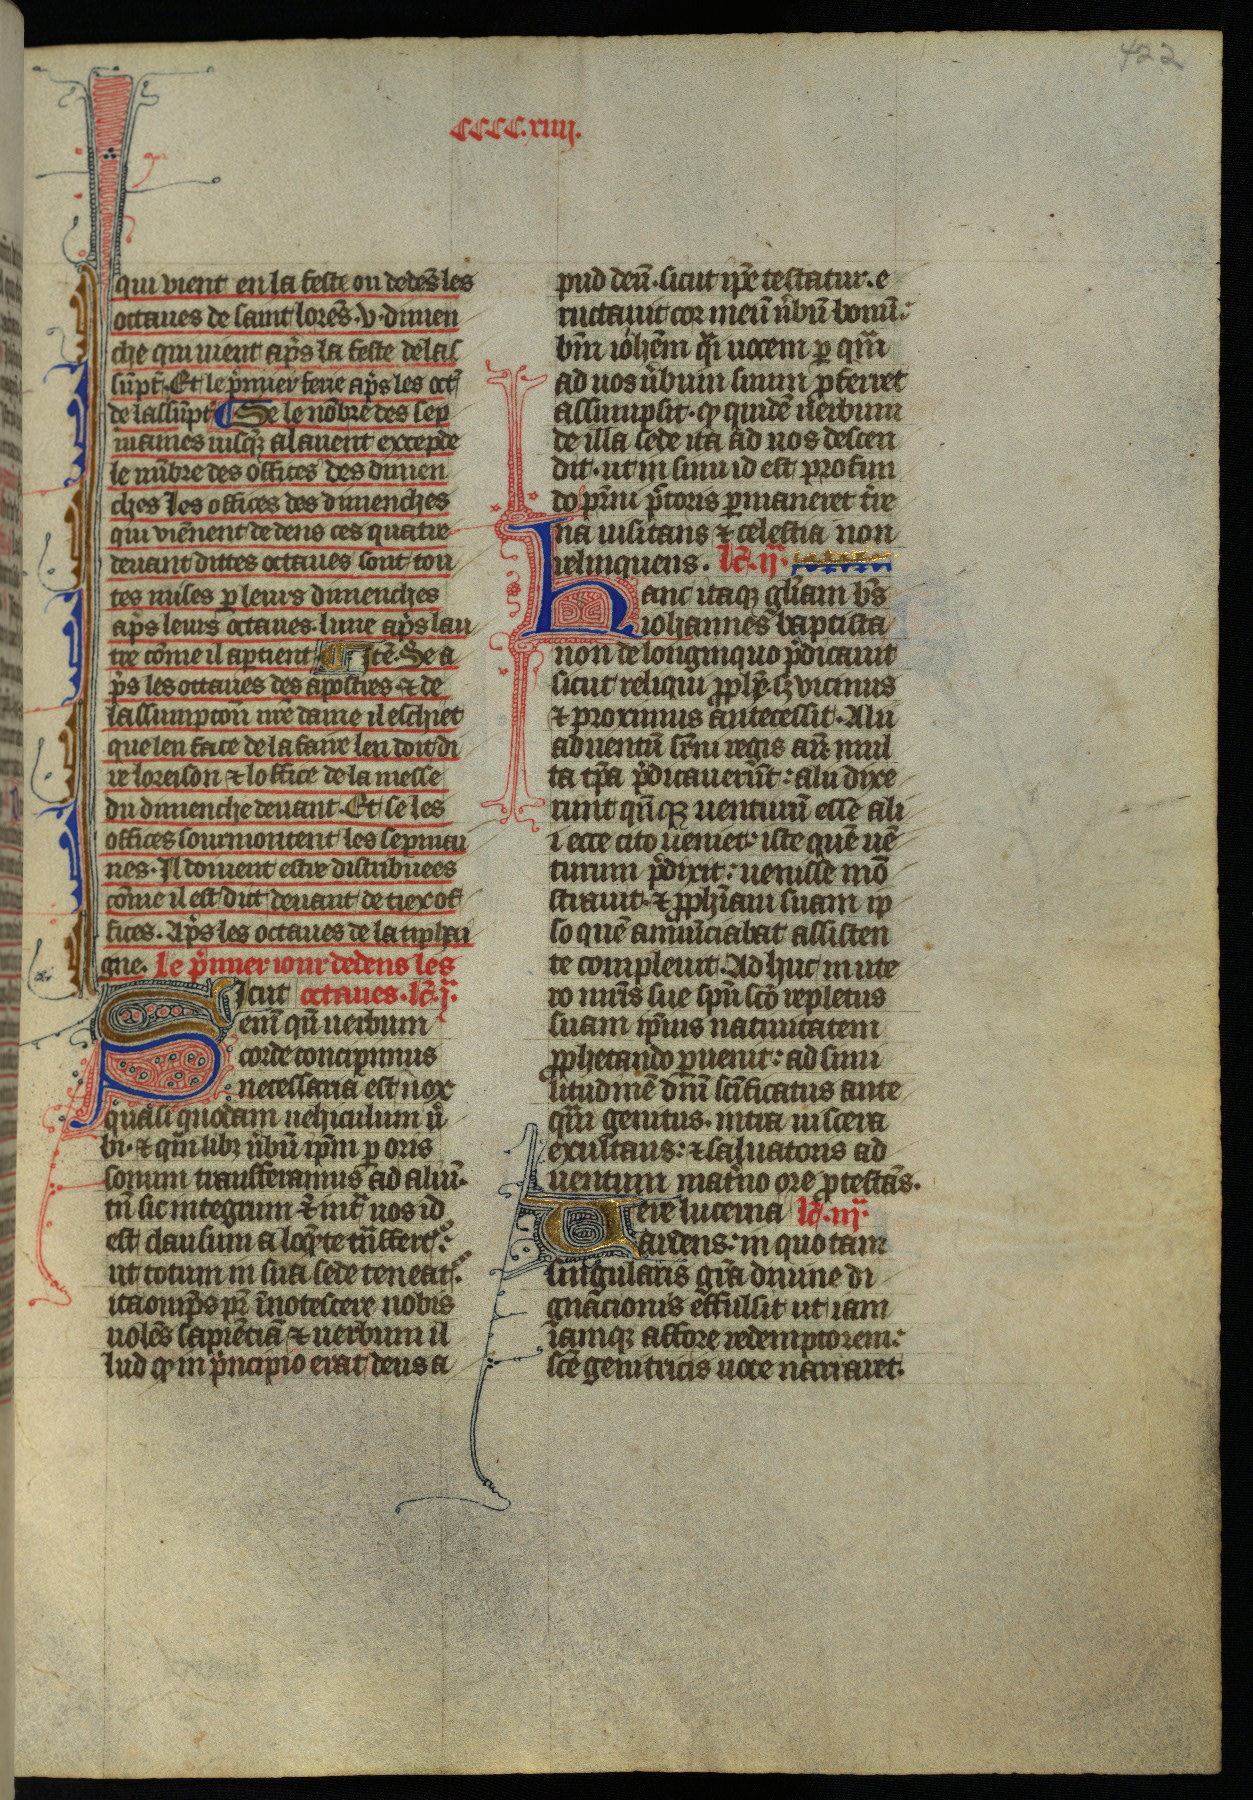 422
CCCC.xiiij.
qui vient en la feste ou dedēs les
octaues de saint lorēs. v. dimen
che qui uient ap̄s la feste de las
sūpt̄. Et le p̄mier ferie ap̄s les oct̄
de lassūpt̄ Se le nōbre des sep
maines iusqꝫ a lauent excepde
le nūbre des offices des dimen
ches Les offices des dimenches
qui viēnent dedens ces quatre
deuant dittes octaues sont tou
tes mises ꝑ leurs dimenches
ap̄s leurs octaues. lune ap̄s lau
tre cōme il aptient Itē. Se a
p̄s les octaues des apostres ⁊ de
lassumpcoū nr̄e dame il eschiet
que len face de la faire len doit di
re loreison ⁊ loffice de la messe
du dimenche deuant. Et se les
offices sourmontent les sepmai
nes. Il doiuent estre distribuees
cōme il est dit deuant de trex of
fices. Ap̄s les octaues de la tiphai
gne. Le p̄mier iour dedens les
Sicut octaues. lc̄. j.
enī qn̄ uerbum
corde concipimus
necessaria est uox
quasi quodam uehiculum ū
bi. ⁊ qm̄ libꝫ ūbū ip̄m ꝑ oris
sonum transferamus ad aliū.
tn̄ sic integrum ⁊ int̄ nos id
est clausum a loq̄nte tn̄sfert᷑:
ut totum in sua sede teneat᷑:
ita omp̄s pr̄ īnotescere nobis
uolēs sapiētiā ⁊ uerbum il
lud qͥ in p̄ncipio erat deus a
pud deū. sicut ip̄e testatur. e
ructauit cor meū ūbū bonū:
bm̄ ioh̄em q̄si uocem ꝑ quā
ad uos ūbum suum ꝓferret
assumpsit. qͥ quidē uerbum
de illa sede ita ad nos descen
dit. ut in sinu id est profun
do pr̄ni p̄ctoris ꝑmaneret t̄re
na uisitans ⁊ celestia non
relinquens. lc̄. ij.
Hanc itaqꝫ gl̄iam bs̄
iohannes baptista
non de longinquo p̄dicauit
sicut reliqui ꝓphē. sꝫ vicinus
⁊ proximus antecessit. Alii
aduentū et̄ni regis an̄ mul
ta tp̄a p̄dicauerūt: alii dixe
runt qn̄qꝫ uenturū esse. ali
i ecce cito ueniet: iste quē uē
turum p̄dixit: uenisse mō
strauit. ⁊ ꝓph̄iam suam ip
so quē annūciabat assisten
te compleuit. Ad huc in ute
ro mr̄is sue sp̄u sc̄o repletus
suam ip̄ius natiuitatem
ꝓphetando p̄uenit: ad simi
litudinē dn̄i sc̄ificatus ante
quā genitus. intra uiscera
exultans: ⁊ saluatoris ad
uentum mat̄no ore ꝓtestās.
Vere lucerna lc̄. iij.
ardens: in quo tam
singularis gr̄a diuine di
gnacionis effulsit ut iam
iamqꝫ affore redemptorem:
sc̄e genitricis uoce narraret.